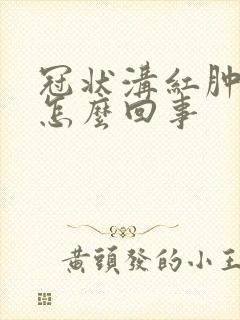 冠状溝紅肿
怎麼回事
黃頭發的小王